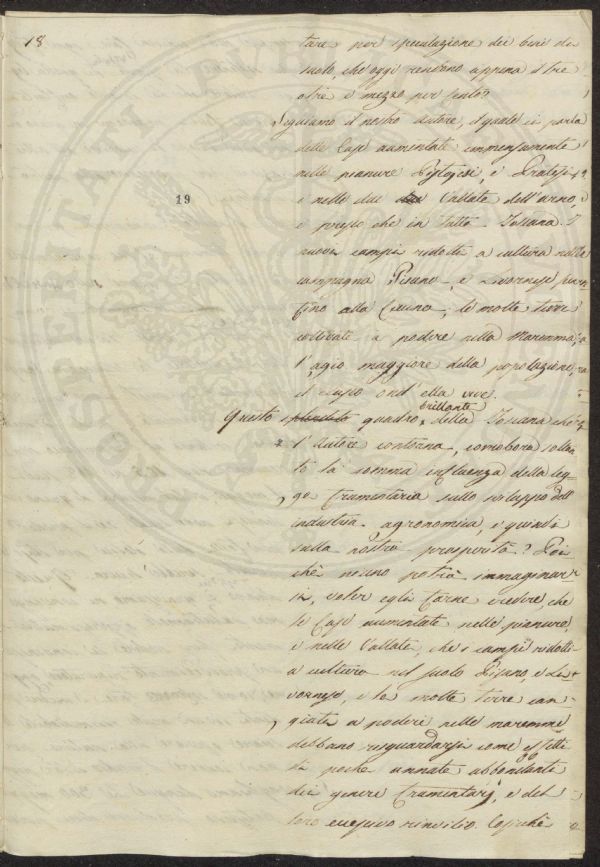 18
tare per speculazione dei beni di
suolo, che oggi rendono appena il tre
o tre e mezzo per cento?
Seguiamo il nostro autore, il quale ci parla
delle Case aumentate immensamente
nelle pianure Pistojesi, e Pratesi,
e nelle due Vallate dell'arno,
e presso che in tutta Toscana. I
nuovi campi ridotti a cultura nella
campagna Pisana, e Livornese per
fino alla Cecina; le molte terre
coltivate a podere nella Maremma;
l'agio maggiore della popolazione,
il ond'ella vive.
Questo splendido quadro brillante della Toscana che
l'autore contorna, corrobora
la somma influenza della leg
ge frumentaria sullo sviluppo dell'
industria agronomica, e quindi
sulla nostra prosperità? Poi
chè niuno potrà immaginar
si, voler egli farne credere, che
le Case aumentate nelle pianure,
e nelle Vallate, che i campi ridotti
a cultura nel suolo Pisano, e Li
vornese, e le molte terre can
giate a poderi nelle maremme
debbano risguardarsi come effetti
di poche annate abbondanti
dei generi frumentarj, e del
loro eccessivo rinvilio. Cosichè
19
PROSPERITATI PUBL